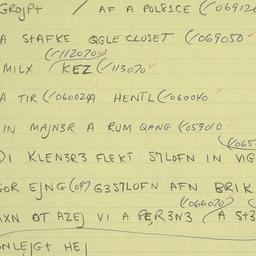 GROJPT / AF A POL8ICE (069120
A STAFKE QGLE CLUSET (069050
(112070
MILX / KEZ (113070
A TIR (060024 A HENTL (060040
IN MAJN3R A RUM QANG (059010
(065
DI KLEN3R3 FLEKT S7LOFN IN VIG
GOR EJNG (04) G3S7LOFN AFN BRIK
(066070)
AXN OT AZEJ VI A PER3N3 (A ST3
ONLEJGT HEJ